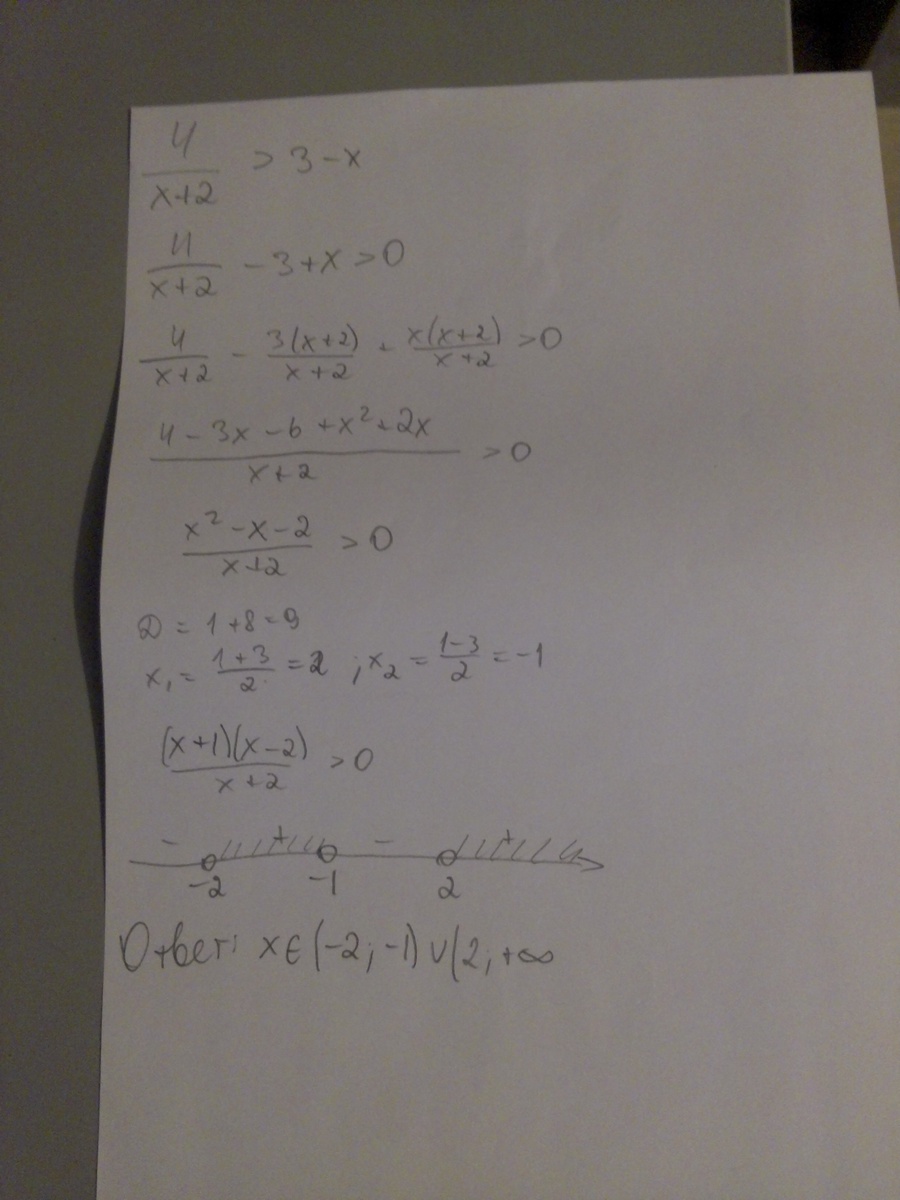 4/(x+2) > 3 - x
4/(x+2) - 3 + x > 0
4/(x+2) - 3(x+2)/(x+2) + x(x+2)/(x+2) > 0
(4 - 3x - 6 + x² + 2x)/(x+2) > 0
(x² - x - 2)/(x+2) > 0
D = 1 + 8 = 9
x₁ = (1+3)/2 = 2 ; x₂ = (1-3)/2 = -1
(x+1)(x-2)/(x+2) > 0
- + - +
-2 -1 2
Ответ: x ∈ (-2; -1) ∪ (2; +∞